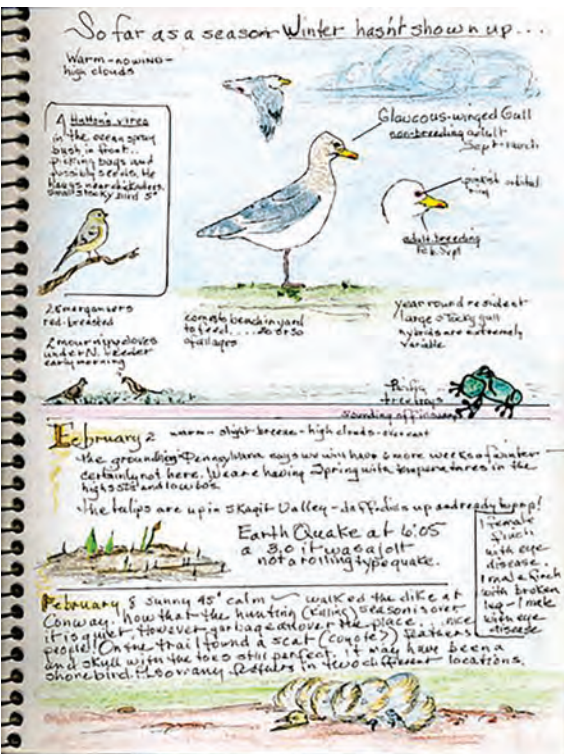 So far as a season Winter hasn't shown up...
Warm - no wind -
high clouds
A Hutton's vireo
in the ocean spray
bush in front..
picking bugs and
possibly seeds. He
hangs near chickadees.
small stocky bird 5"
Glaucous-winged Gull
non-breeding adult
Sept - March
pinkish orbital
ring
adult breeding
Feb. Sept
2 mergansers
red-breasted
2 mourning doves
under N. feeder
early morning
comes to beach in yard
to feed .... 20 or so
of all ages
year round resident
large stocky gull
hybrids are extremely
variable
Pacific
tree frogs
sounding off in
February 2 warm - slight breeze - high clouds -
the groundhog in Pennsylvania says we will have 6 more weeks of winter
certainly not here. We are having Spring with temperatures in the
high 50s and low 60s.
The tulips are up in Skagit Valley - daffodils up and ready to pop!
Earth Quake at 6:05
a 3.0 it was a jolt
not a rolling type quake.
1 female
finch
with eye
disease.
1 male finch
with broken
leg - 1 male
with eye
disease
February 8 sunny 45° calm walked the dike at
Conway. now that the hunting (killing) season is over
it is quiet. However garbage all over the place... nice
people! On the trail found a scat (coyote?) feathers
and skull with the toes still perfect. it may have been a
shorebird. Also many feathers in two different locations.